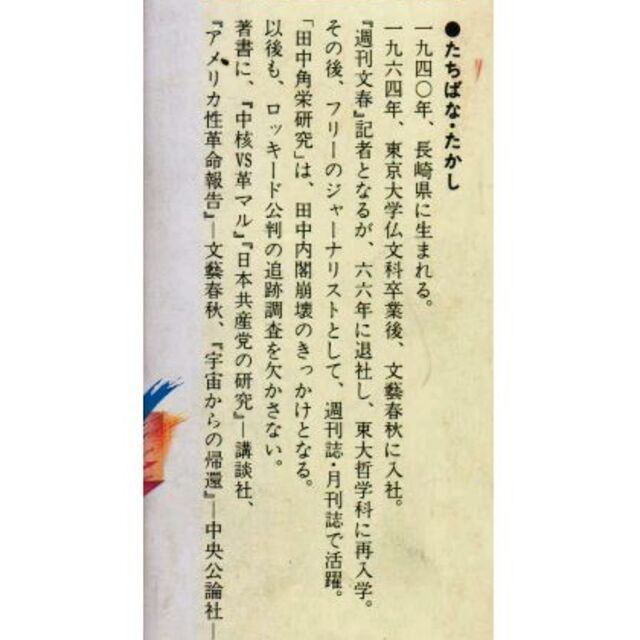 ●たちばな・たかし
一九四〇年、長崎県に生まれる。
一九六四年、東京大学仏文科卒業後、文藝春秋に入社。
『週刊文春』記者となるが、六六年に退社し、東大哲学科に再入学。
その後、フリーのジャーナリストとして、週刊誌・月刊誌で活躍。
「田中角栄研究」は、田中内閣崩壊のきっかけとなる。
以後も、ロッキード公判の追跡調査を欠かさない。
著書に、『中核VS革マル』『日本共産党の研究』―講談社、
『アメリカ性革命報告』―文藝春秋、『宇宙からの帰還』―中央公論社―